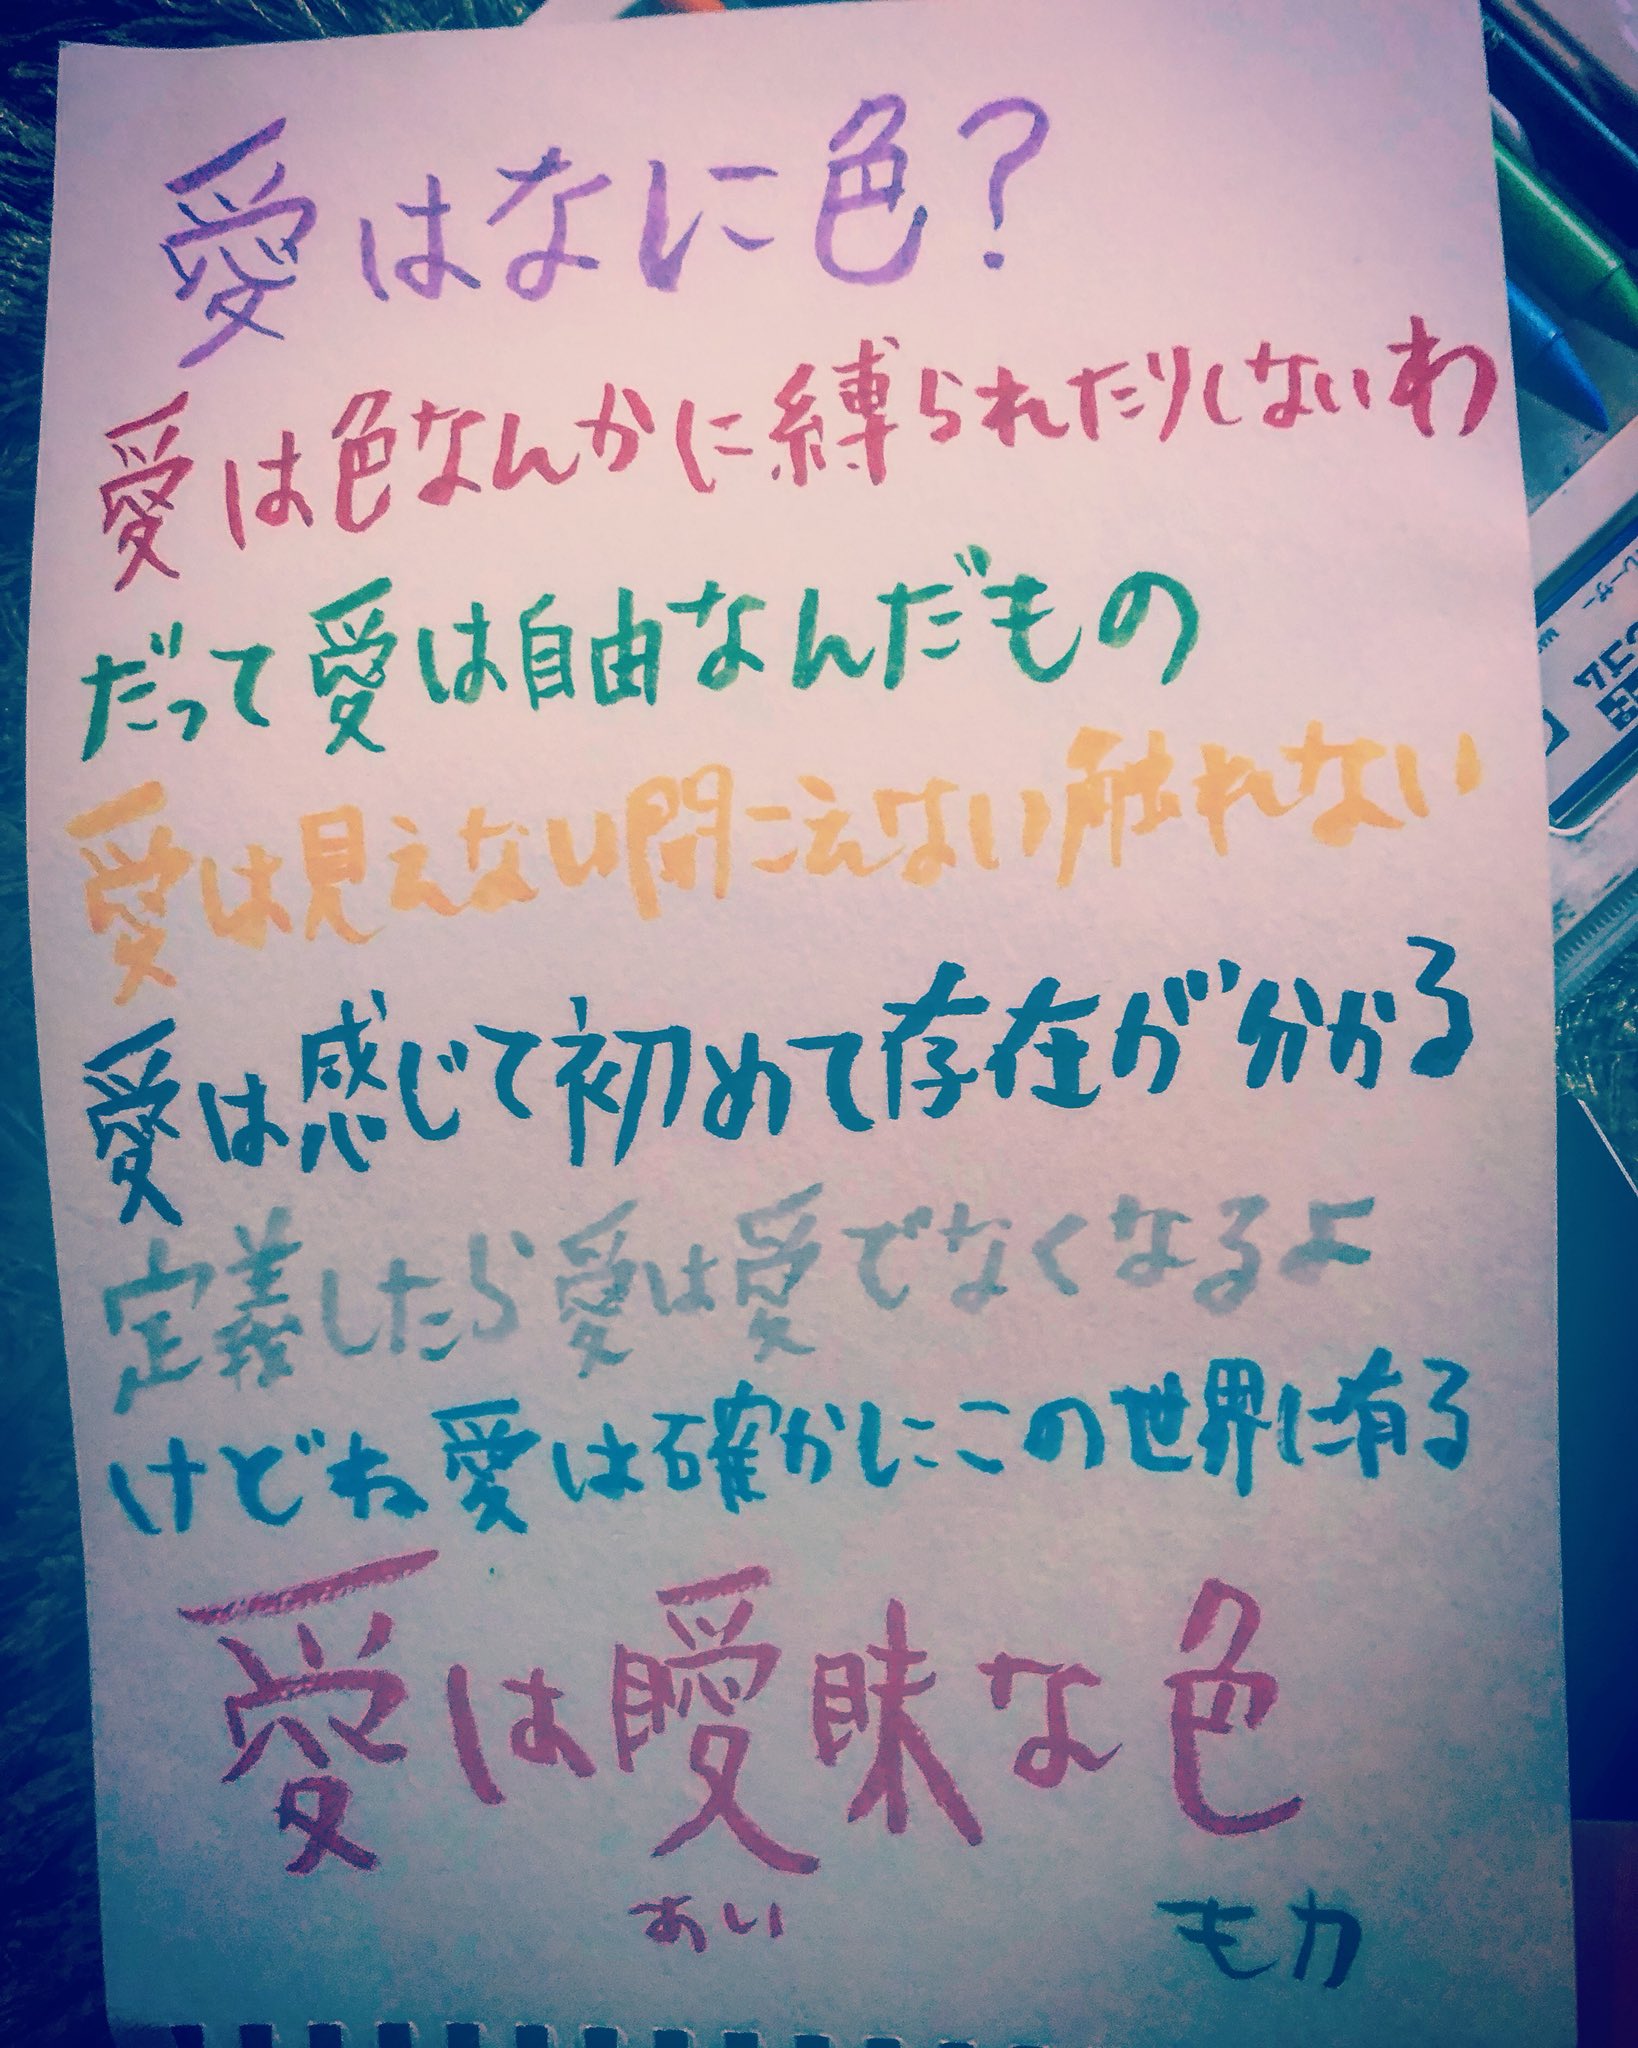 愛はなに色？
愛は色なんかに縛られたりしないわ
だって愛は自由なんだもの
愛は見えない聞こえない触れない
愛は感じて初めて存在が分かる
定義したら愛は愛でなくなるよ
けどね愛は確かにこの世界に有る
愛は曖昧な色
あい
モカ